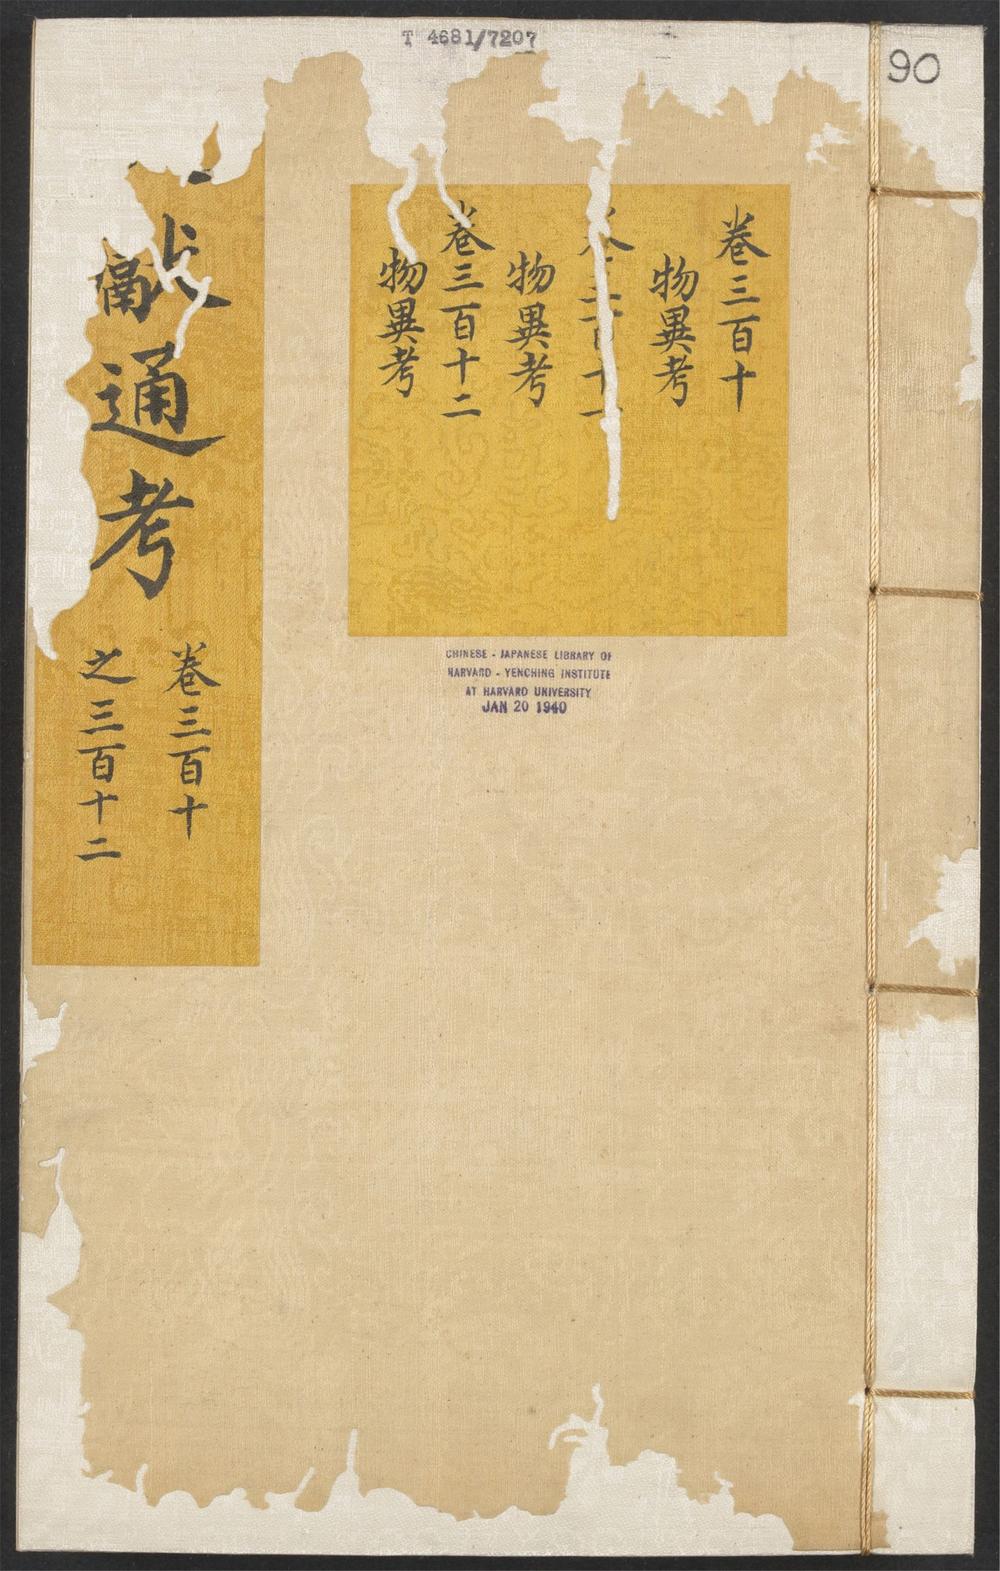 T 4681/7207
90
卷三百十
物異考
物異考
卷三百十二
物異考
CHINESE - JAPANESE LIBRARY OF
HARVARD - YENCHING INSTITUTE
AT HARVARD UNIVERSITY
JAN 20 1940
通考
卷三百十
之三百十二